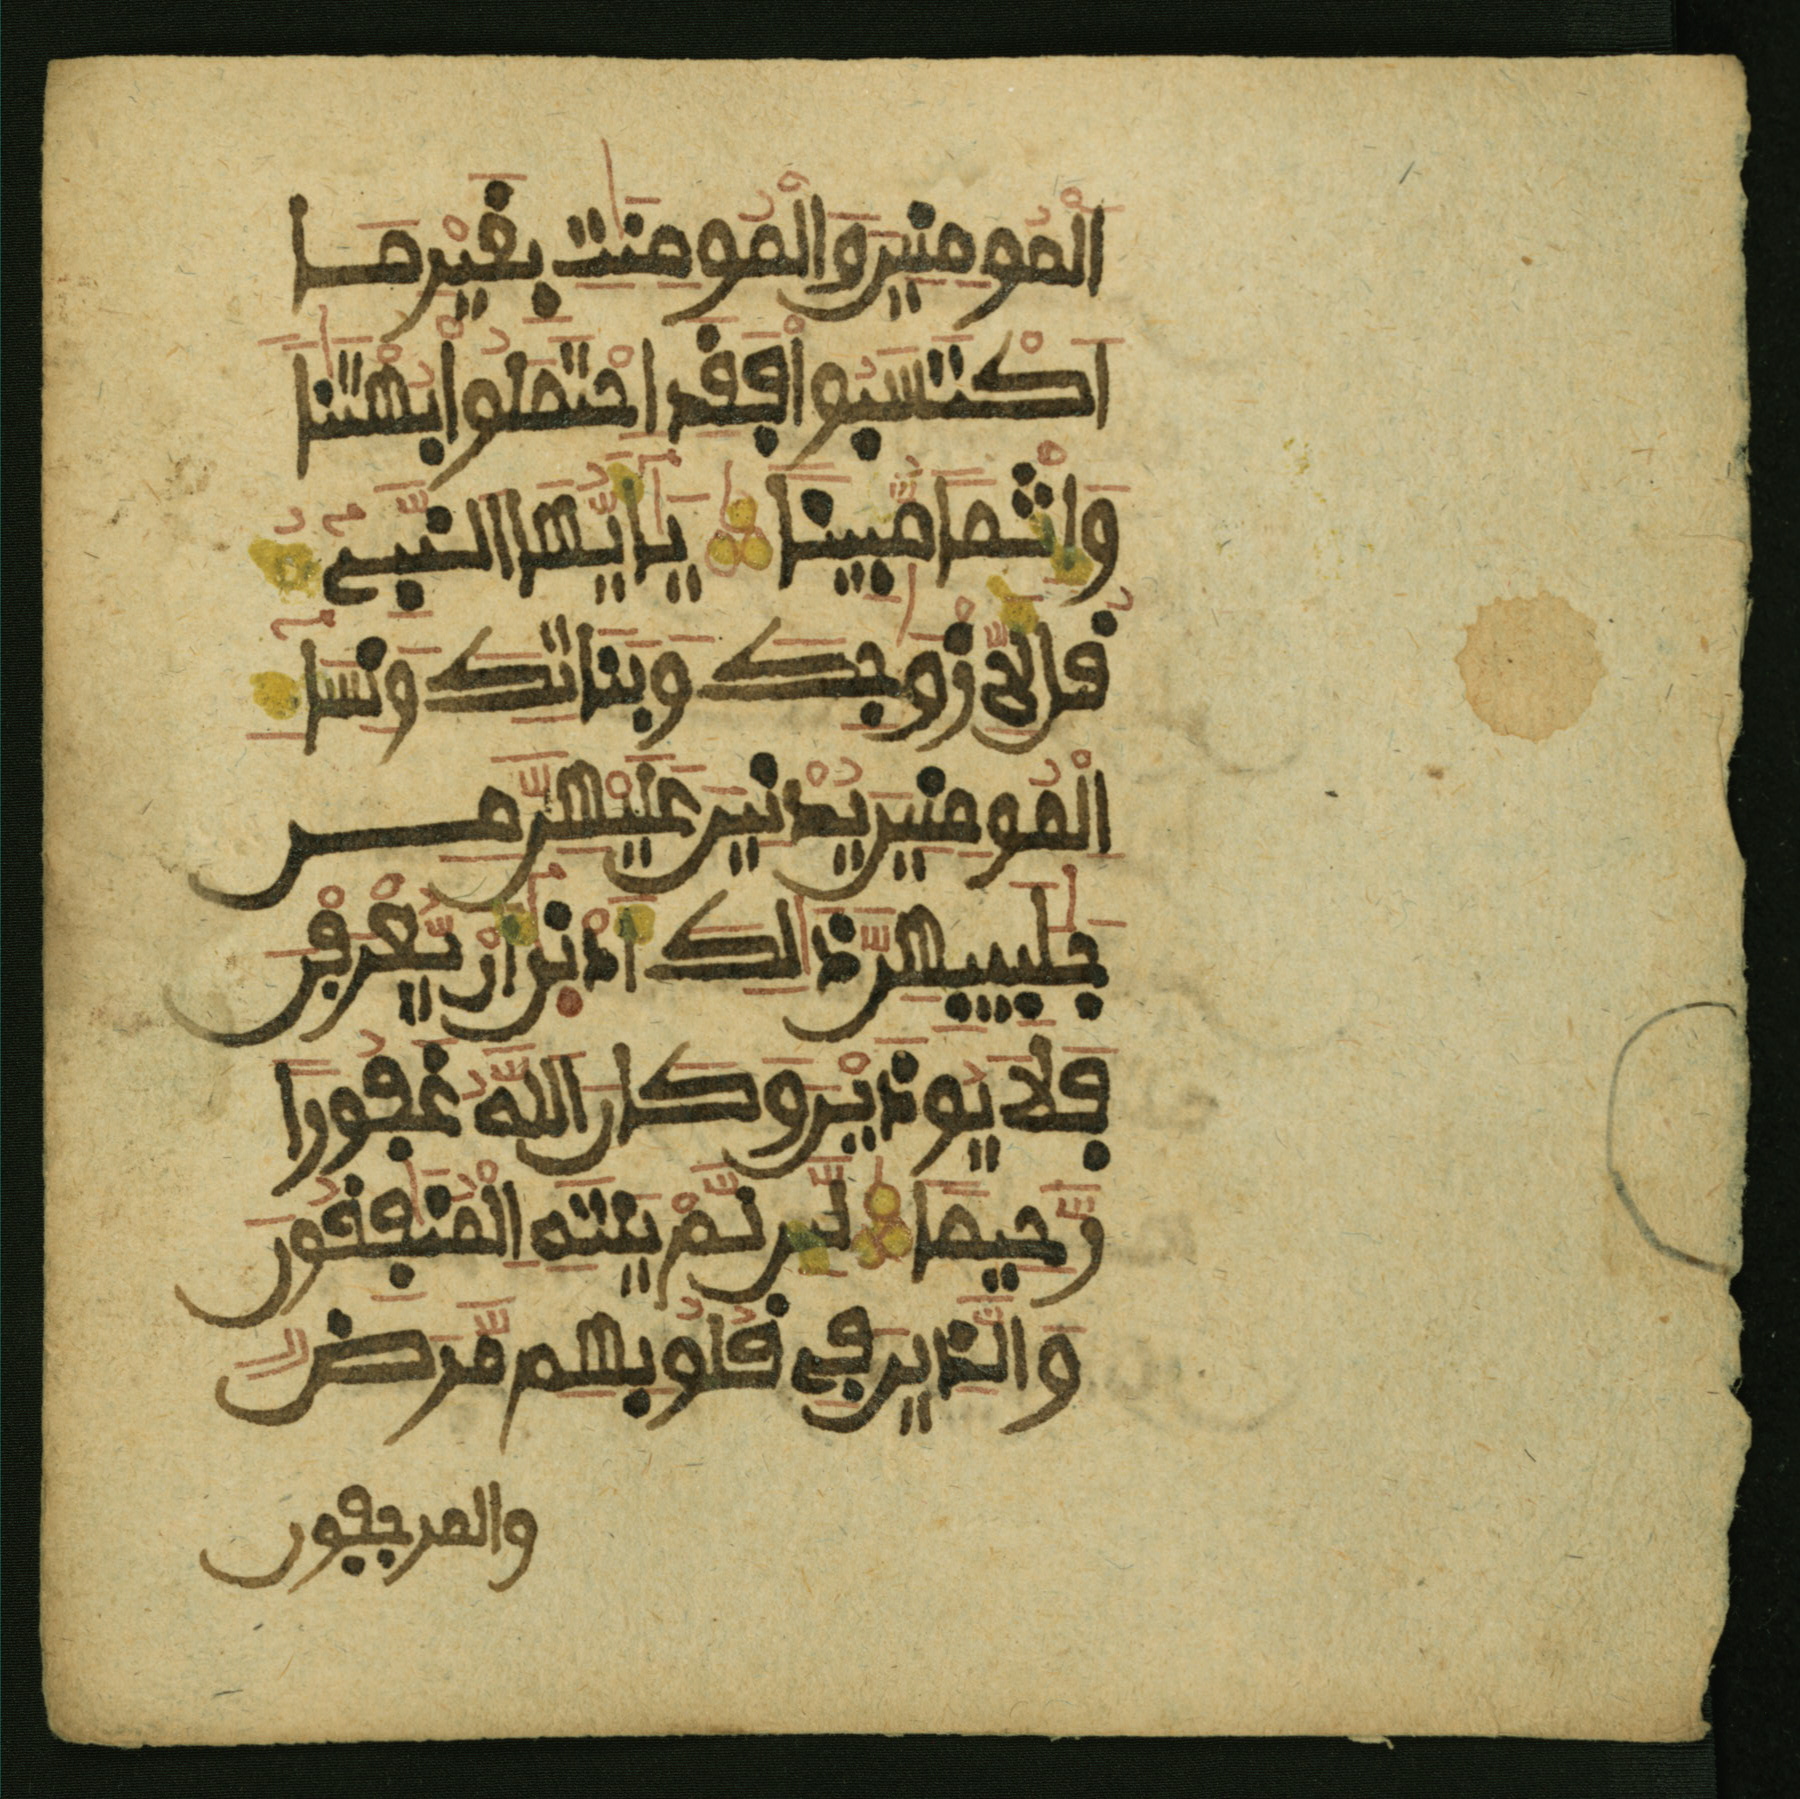 الْمُومِنِينَ وَالْمُومِنَٰتِ بِغَيْرِ مَا
اَكْتَسَبُواْ فَقَدِ اِحْتَمَلُواْ بُهْتَٰنًا
وَإِثْمًا مُّبِينًا يَٰأَيُّهَا النَّبِيءُ
قُل لِّأَزْوَٰجِكَ وَبَنَاتِكَ وَنِسَاءِ
الْمُومِنِينَ يُدْنِينَ عَلَيْهِنَّ مِن
جَلَٰبِيبِهِنَّ ذَٰلِكَ أَدْنَىٰ أَنْ يُّعْرَفْنَ
فَلَا يُوذَيْنَ وَكَانَ اللَّهُ غَفُورًا
رَّحِيمًا لَّئِن لَّمْ يَنتَهِ الْمُنَٰفِقُونَ
وَالَّذِينَ فِي قُلُوبِهِم مَّرَضٌ
والمرجفون